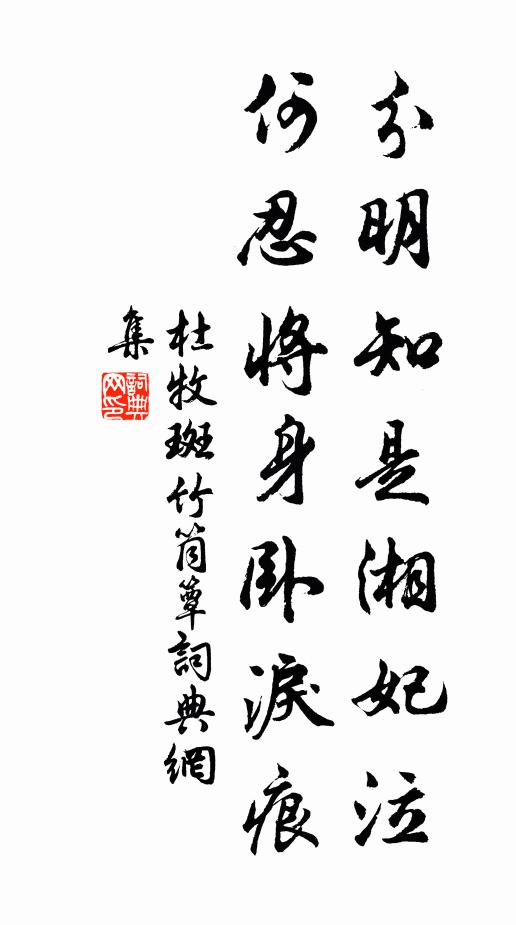 分明知是湘妃泣
何忍將身卧淚痕
杜牧斑竹筒簟詞典網
集
詞典
网印